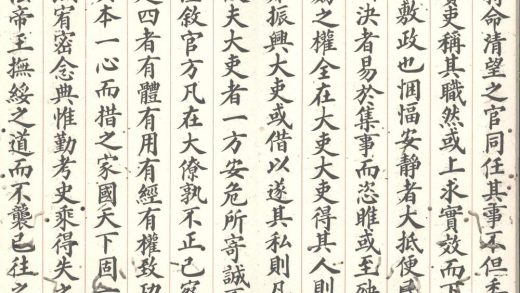 命清望之官同任其事不但
吏稱其職然或上求實效而下
敷政也悃愊安靜者大抵便民
決者易於集事而恣睢或至殃
之權全在大吏大吏得其人則
振興大吏或借以遂其私則凡
夫大吏者一方安危所寄誠
敘官方凡在大僚孰不正己
四者有體有用有經有權致功
本一心而措之家國天下固
宥密念典惟勤考史乘得失之
帝王撫綏之道而不襲已往之